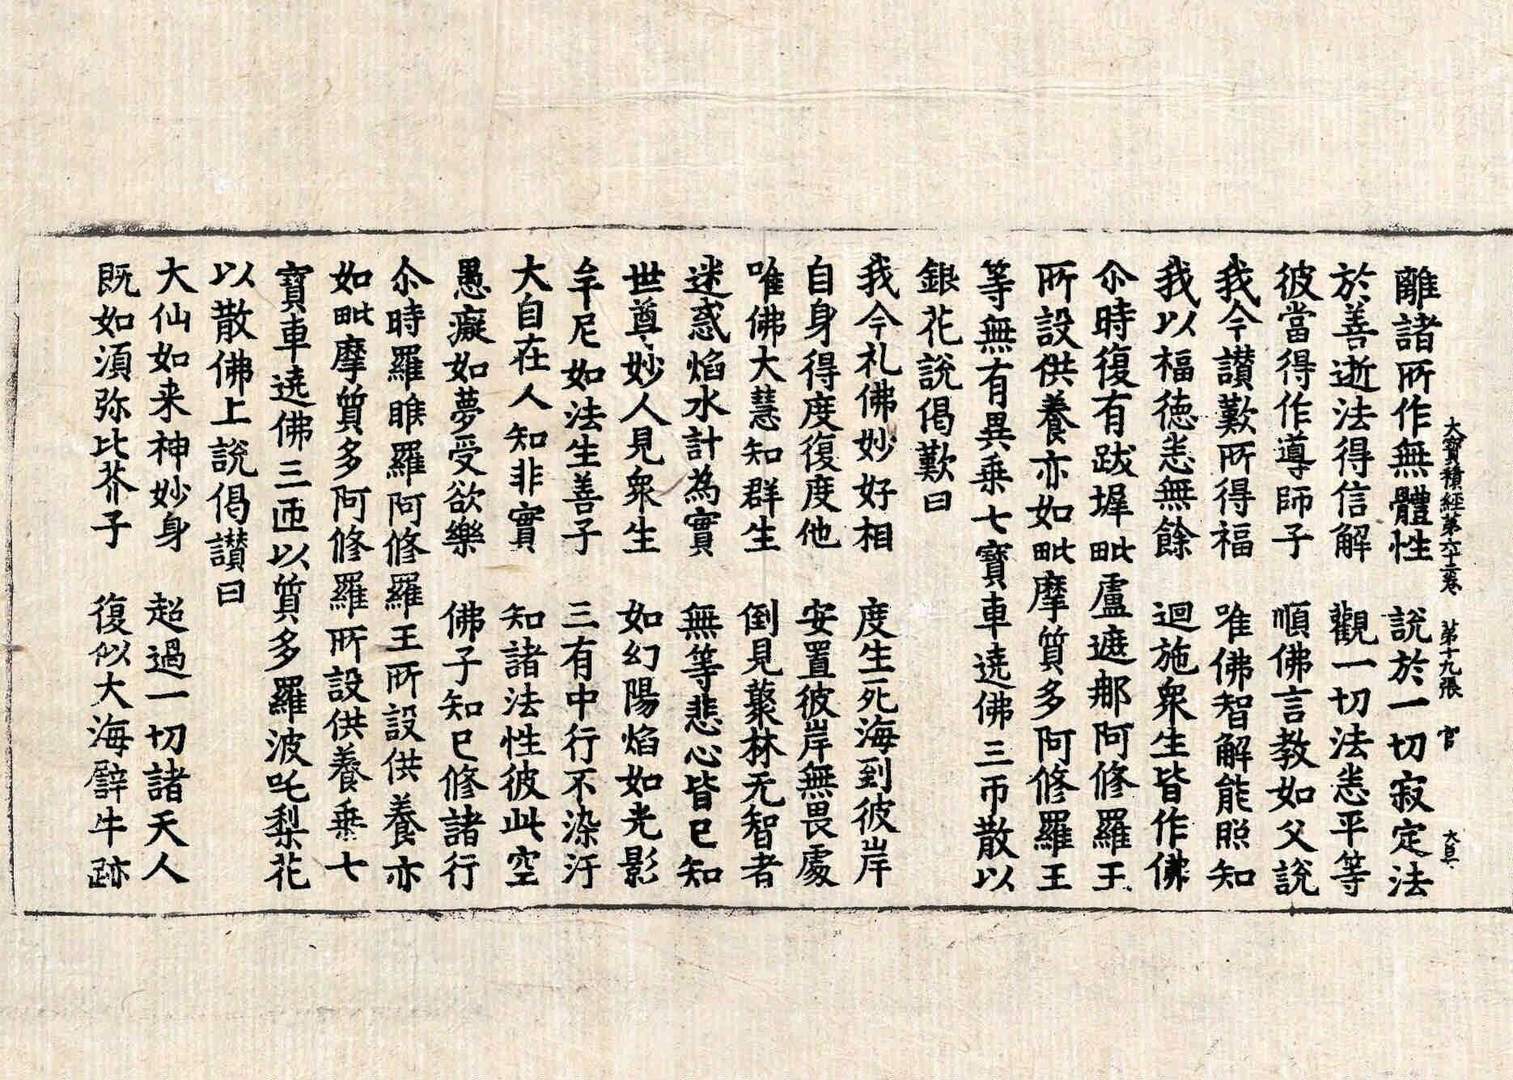 大寶積經第六十三卷　第十九張　官　大阜
離諸所作無體性　說於一切寂定法
於善逝法得信解　觀一切法悉平等
彼當得作導師子　順佛言教如父說
我今讚歎所得福　唯佛智解能照知
我以福德悉無餘　迴施眾生皆作佛
尒時復有跋墀毗盧遮那阿修羅王
所設供養亦如毗摩質多阿修羅王
等無有異乗七寶車遶佛三帀散以
銀花說偈歎曰
我今礼佛妙好相　度生死海到彼岸
自身得度復度他　安置彼岸無畏處
唯佛大慧知群生　倒見藂林无智者
迷惑焰水計為實　無等悲心皆已知
世尊妙人見眾生　如幻陽焰如光影
牟尼如法生善子　三有中行不染汙
大自在人知非實　知諸法性彼此空
愚癡如夢受欲樂　佛子知已修諸行
尒時羅睺羅阿修羅王所設供養亦
如毗摩質多阿修羅所設供養乗七
寶車遶佛三匝以質多羅波吒梨花
以散佛上說偈讃曰
大仙如来神妙身　超過一切諸天人
既如湏弥比芥子　復似大海𨐢牛跡